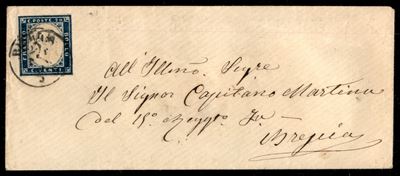 FRANCO
C. POSTE 20
BOLLO
CENT
All' Illmo. Sigre
Il Signor Capitano Martina
del 15o Reggto. Fa
Brescia